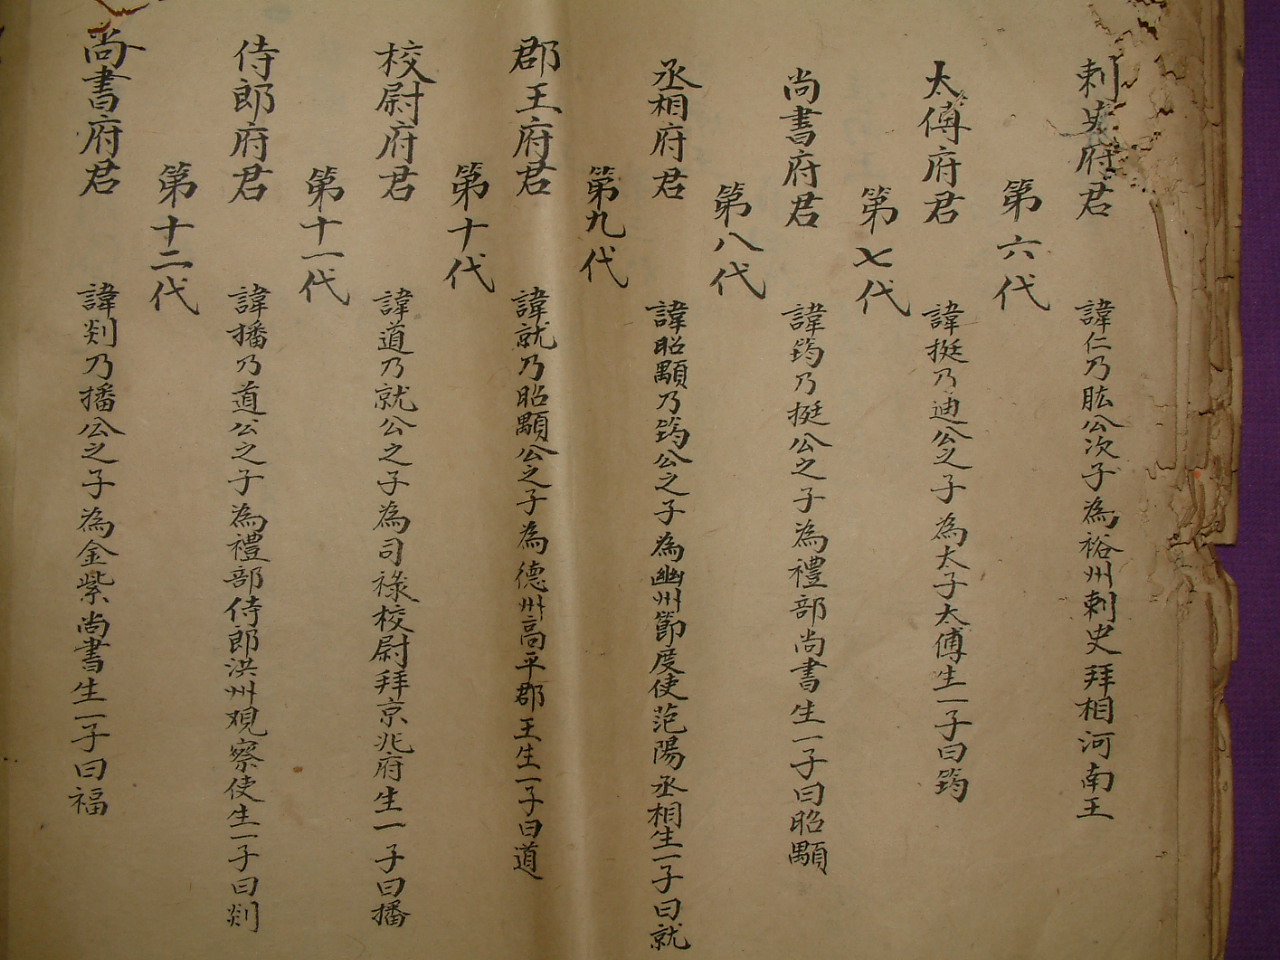 刺史府君 諱仁乃肱公次子為裕州刺史拜相河南王
第六代
太傅府君 諱挺乃迪公之子為太子太傅生一子曰筠
第七代
尚書府君 諱筠乃挺公之子為禮部尚書生一子曰昭顒
第八代
丞相府君 諱昭顒乃筠公之子為幽州節度使范陽丞相生一子曰就
第九代
郡王府君 諱就乃昭顒公之子為德州高平郡王生一子曰道
第十代
校尉府君 諱道乃就公之子為司祿校尉拜京兆府生一子曰播
第十一代
侍郎府君 諱播乃道公之子為禮部侍郎洪州观察使生一子曰剡
第十二代
尚書府君 諱剡乃播公之子為金紫尚書生一子曰福